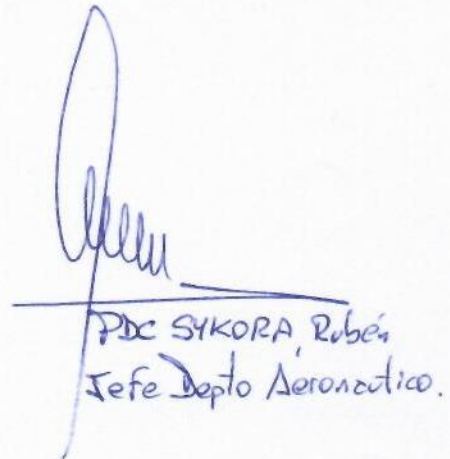 PDC SYKORA, Rubén
Jefe Depto Aeronautico.